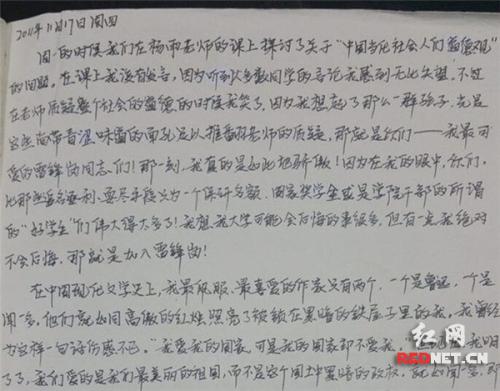 2011年11月17日 周四
周一的时候我们在杨雨老师的课上探讨了关于“中国当代社会人们道德观”
的问题。在课上我没有发言，因为听到大多数同学的言论我感到无比失望。不过
在老师质疑整个社会的道德的时候我笑了，因为我想起了那么一群孩子，光是
这些面带青涩味道的面孔足以推翻老师的质疑，那就是你们——我最可
爱的雷锋岗同志们！那一刻，我真的是如此地骄傲！因为在我的眼中，你们，
比那些追名逐利、耍尽手段只为一个保研名额、国家奖学金或是学院干部的所谓
的“好学生”们伟大得太多了！我想，我大学可能会后悔的事很多，但有一点我绝对
不会后悔，那就是加入雷锋岗！
在中国现代文学史上，我最佩服、最喜爱的作家只有两个，一个是鲁迅，一个是
闻一多，他们就如同高傲的红烛照亮了锁锁在黑暗的铁屋子里的我，我曾经
为这样一句话伤感不已，“我爱我的国家，可是我的国家却不爱我，
了，我们爱的是我们最美丽的祖国，而不是这个国土中黑暗的政权，就如闻一多，
红网
REDNET.CN